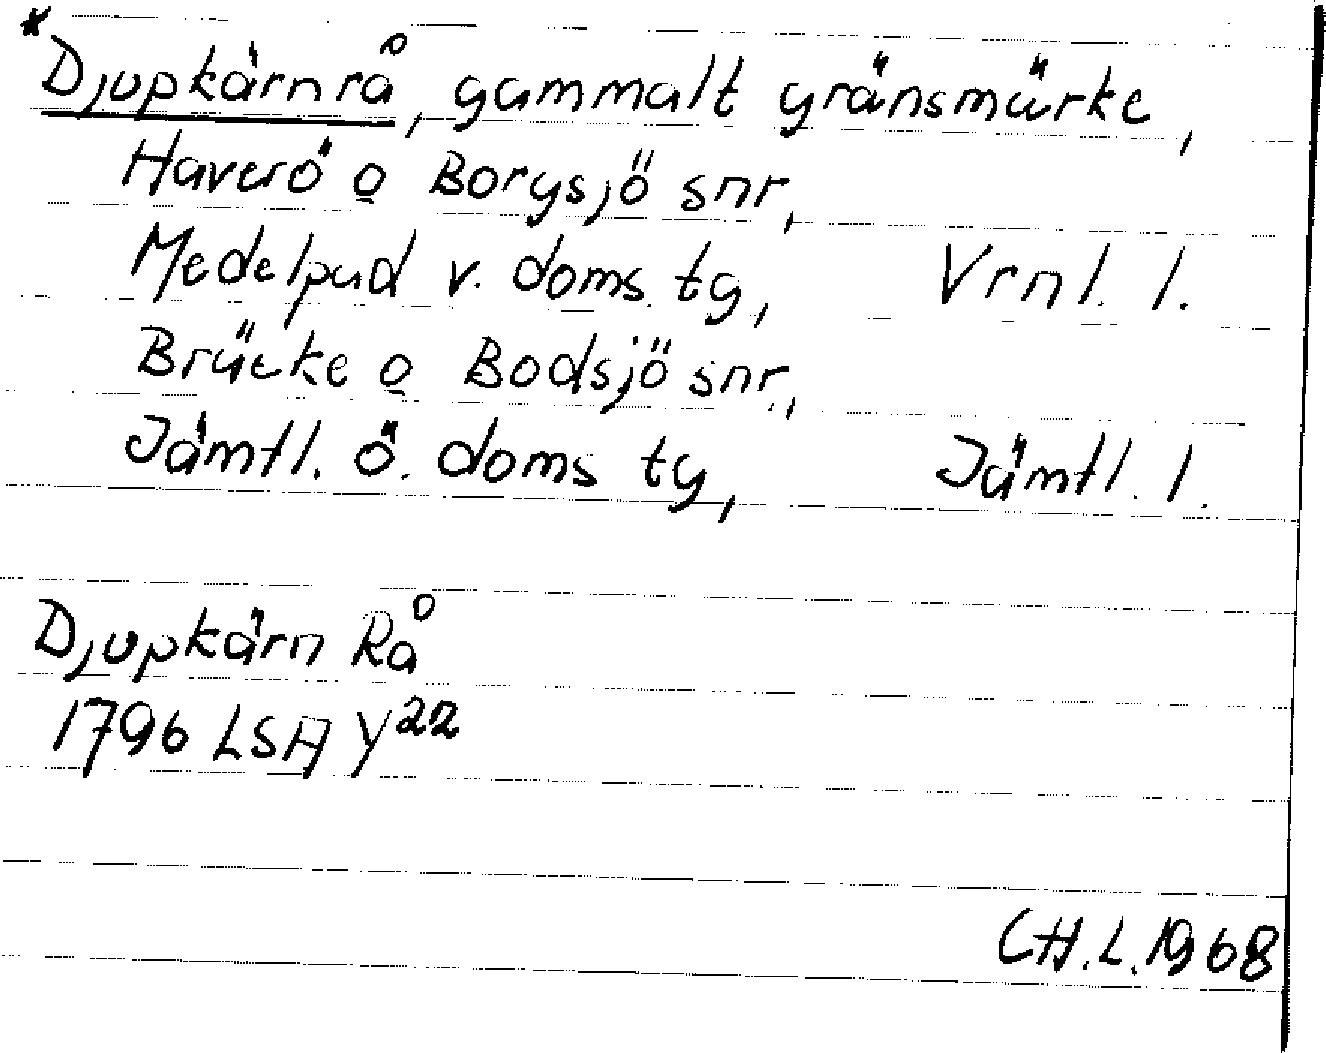 *Djupkärnrå, gammalt gränsmärke,
Haverö o Borgsjö snr,
Medelpad v. doms. tg, Vrnl. l.
Bräcke o Bodsjö snr.,
Jämtl. ö. doms tg, Jämtl. l.
Djupkärn Rå
1796 LSA Y22
CH.L. 1968